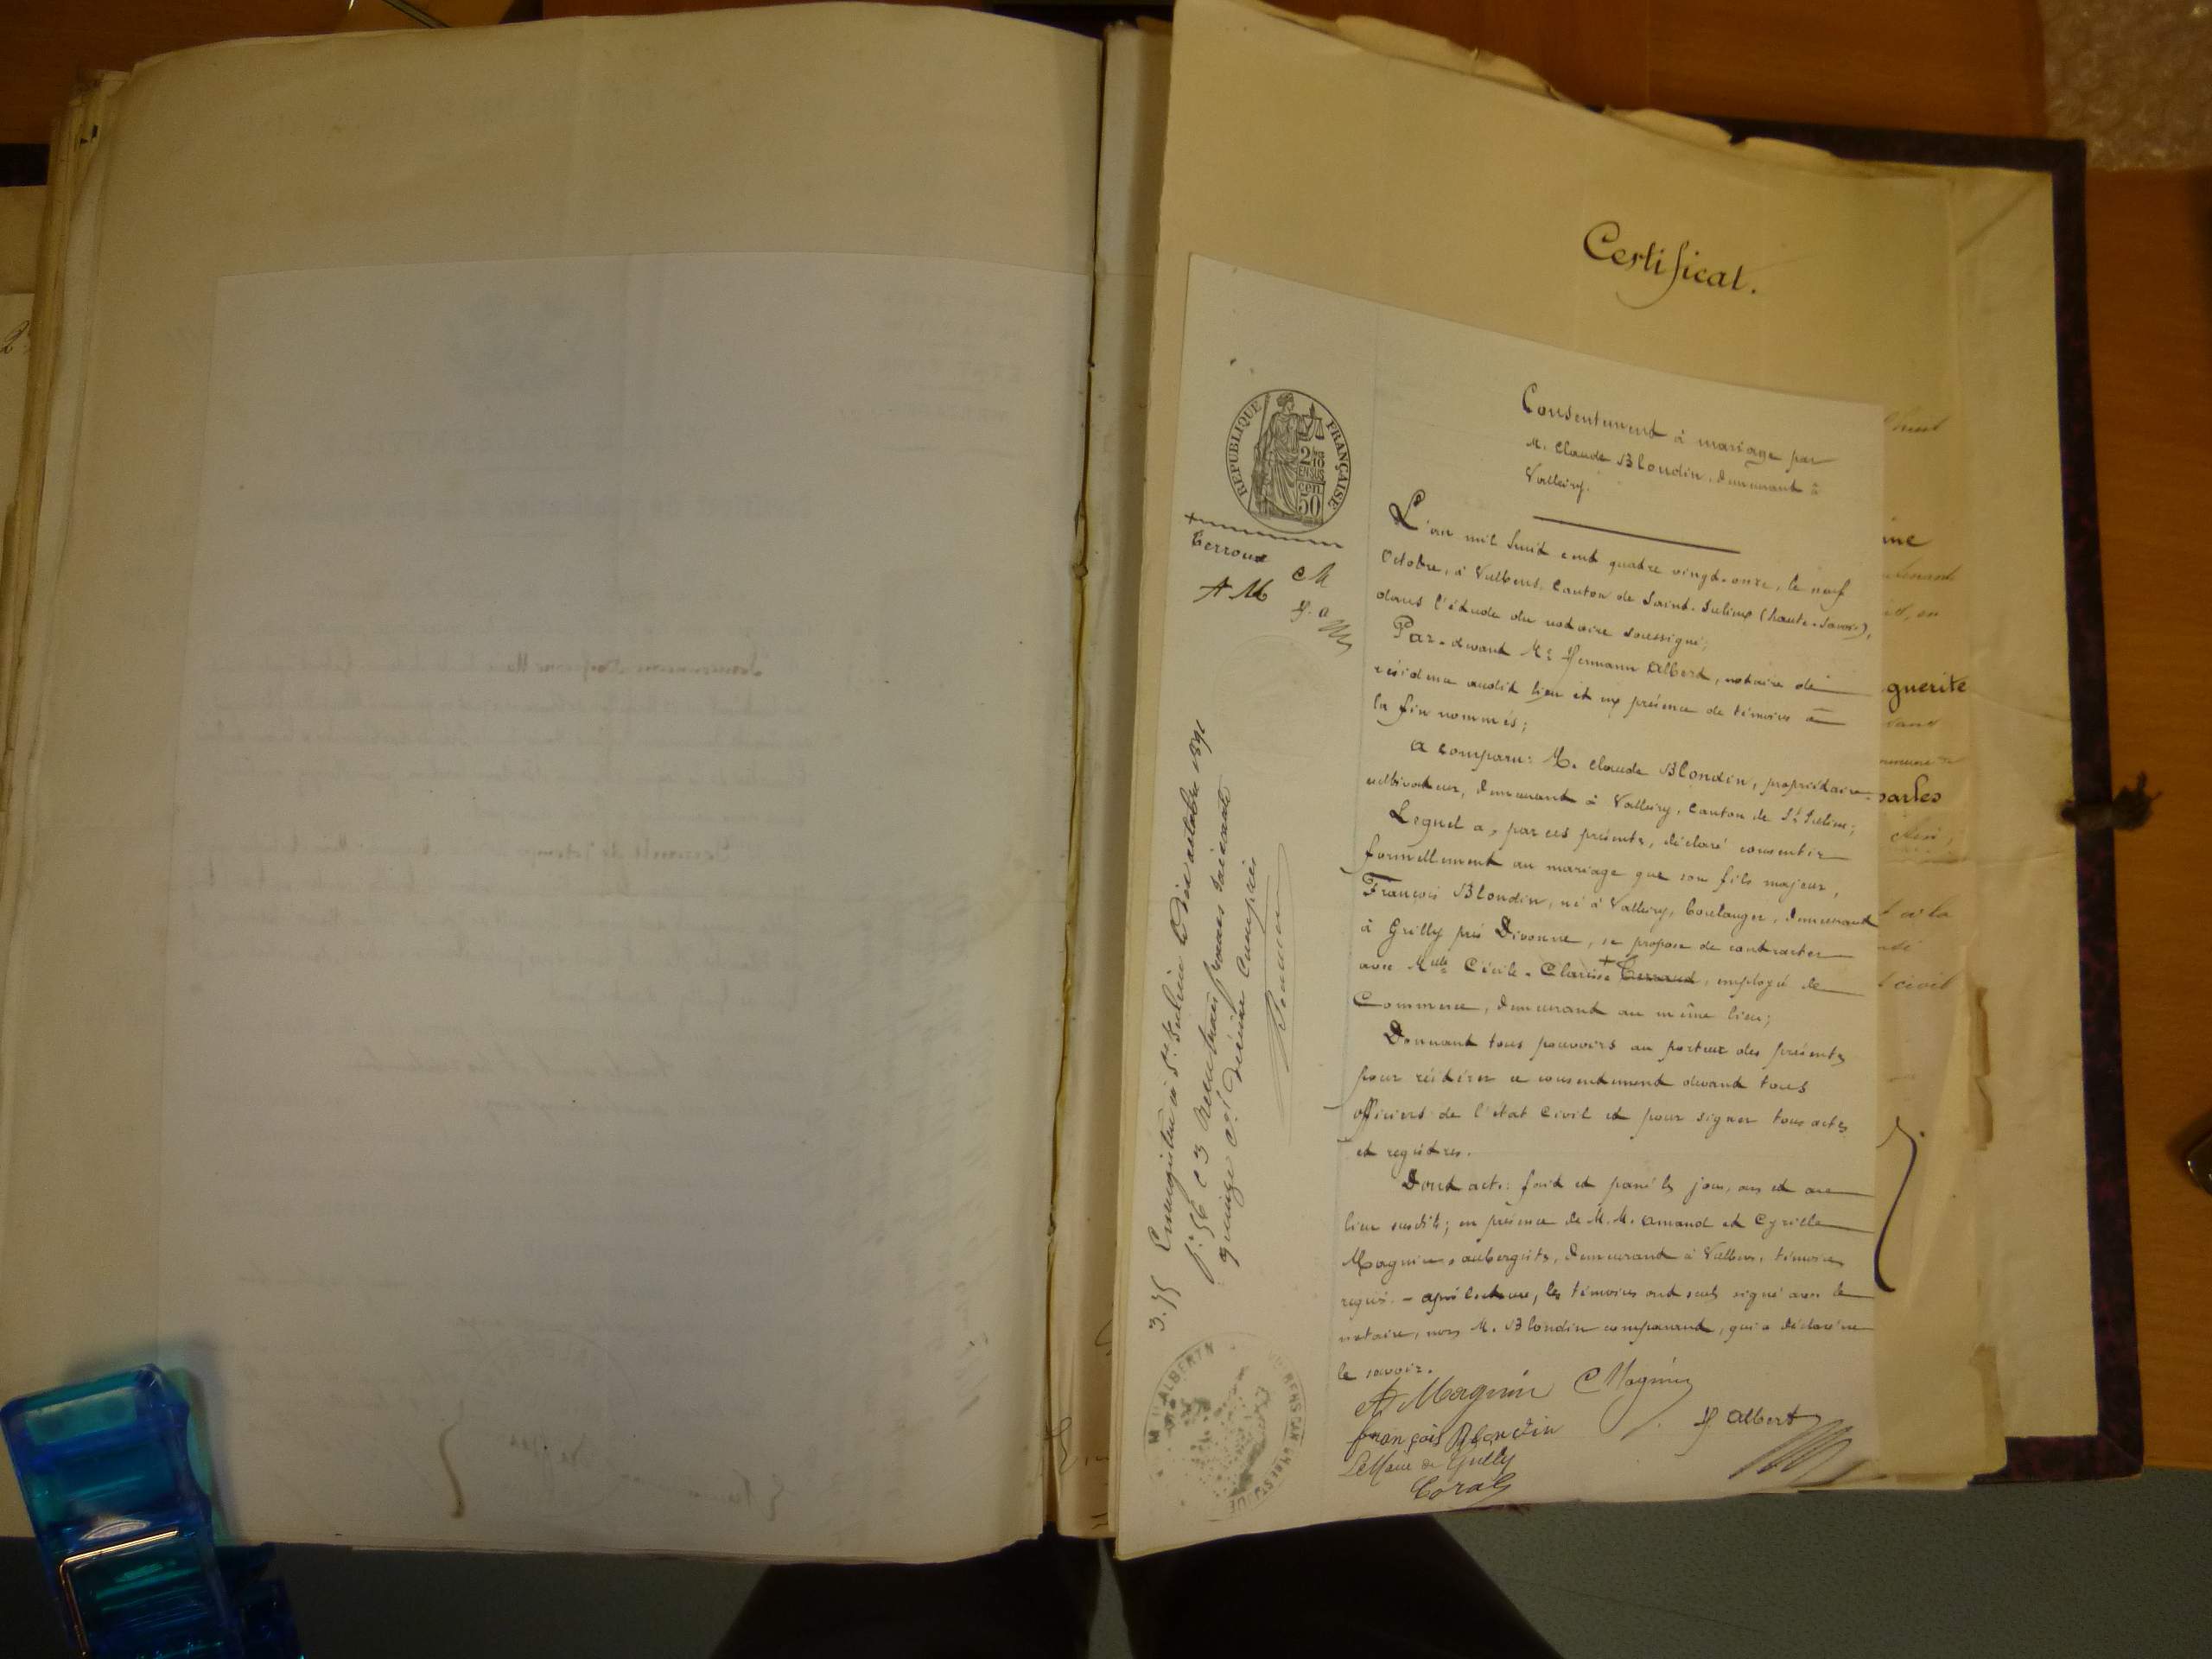 Certificat.
REPUBLIQUE FRANÇAISE
2/10
EN SUS
50 cen
Consentement à mariage par
M. Claude Blondin, demeurant à
Valleiry.
Terroux
A M
C M
H. A
L'an mil huit cent quatre vingt-onze, le neuf
Octobre, à Vulbens, Canton de Saint-Julien (Haute-Savoie),
dans l'étude du notaire soussigné;
Par-devant Me Hermann Albert, notaire de
résidence audit lieu et en présence de témoins à
la fin nommés;
A comparu: M. Claude Blondin, propriétaire-
cultivateur, demeurant à Valleiry, Canton de St Julien;
Lequel a, par ces présentes, déclaré consentir
formellement au mariage que son fils majeur,
François Blondin, né à Valleiry, boulanger, demeurant
à Grilly près Divonne, se propose de contracter
avec Mlle Cécile-Clarisse + , employé de
Commerce, demeurant au même lieu;
Donnant tous pouvoirs au porteur des présentes
pour réitérer ce consentement devant tous
officiers de l'état civil et pour signer tous actes
et registres.
Dont acte: fait et passé les jour, an et au
lieu susdits; en présence de M.M. Amand et Cyrille
Magnin, aubergistes, demeurant à Vulbens, témoins
requis. - Après lecture, les témoins ont seuls signé avec le
notaire, non M. Blondin comparant, qui a déclaré ne
le savoir.
A Magnin C Magnin
François Blondin H Albert
Le Maire de Grilly
3.75 Enregistré à St Julien le Dix octobre 1891
fo 56 Co 3 Reçu trois francs soixante
quinze cmes Décime Compris
guerite
parles
civil